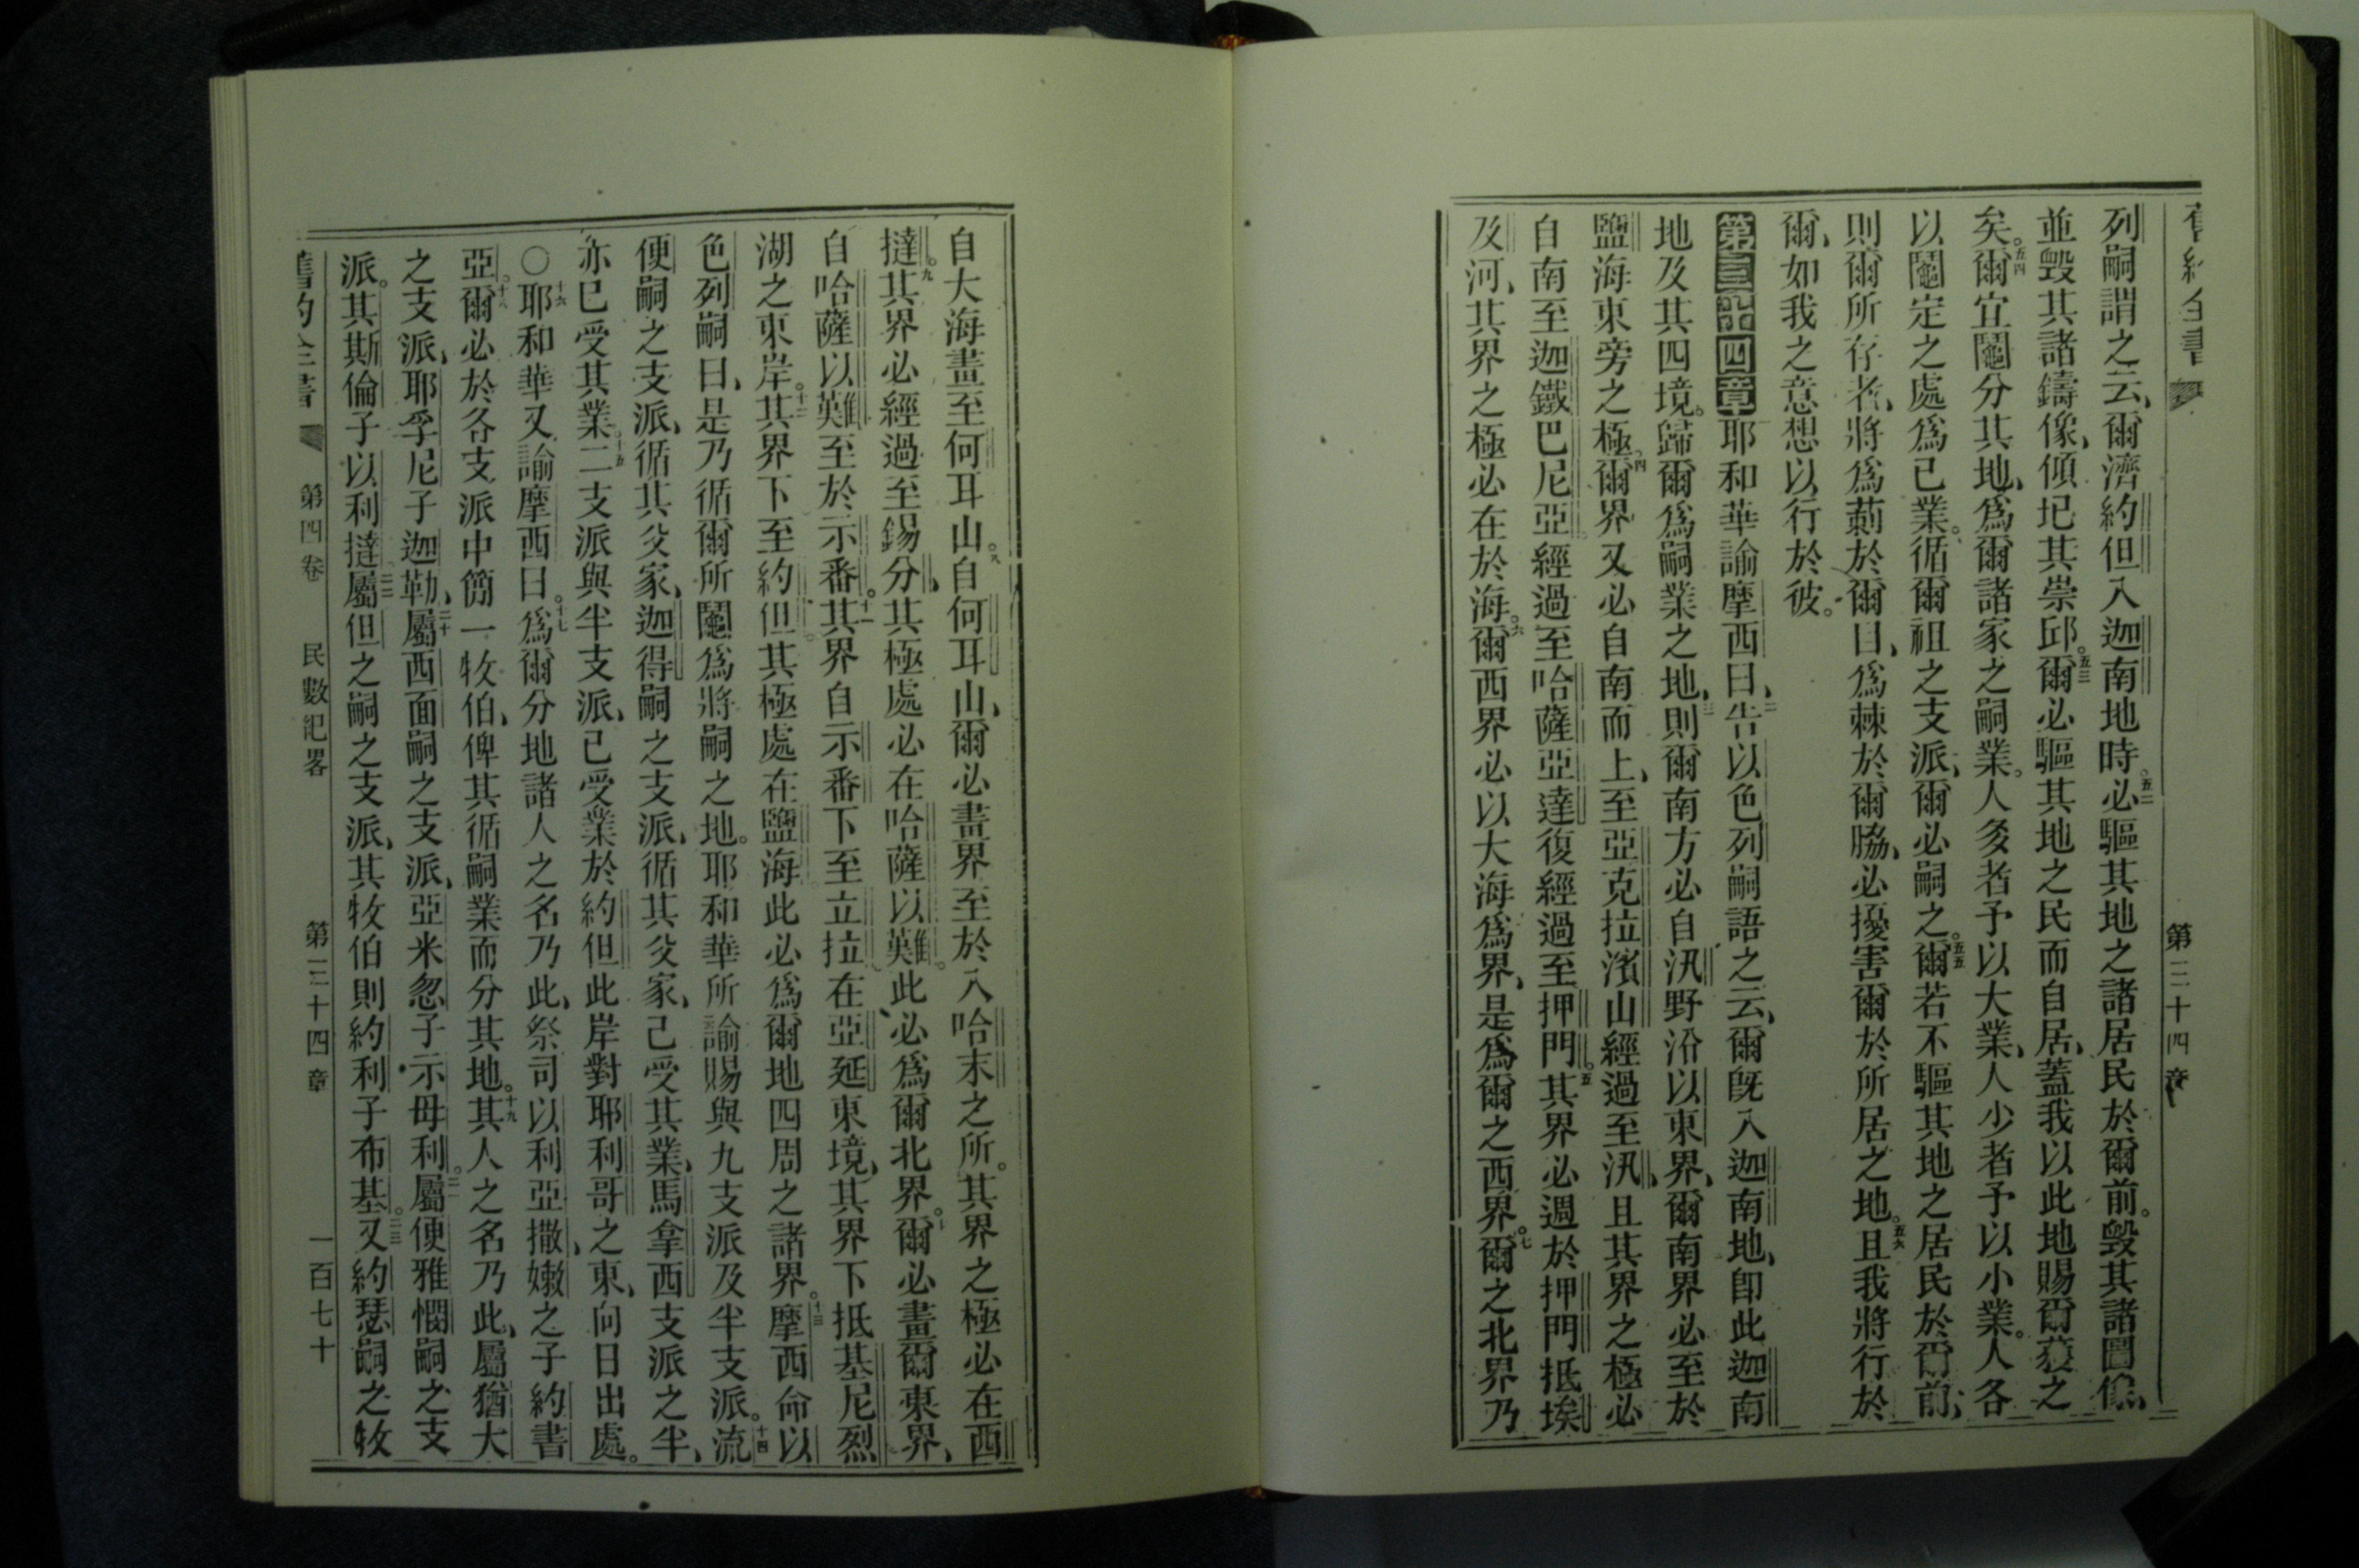 舊約全書 第三十四章
列嗣謂之云、爾濟約但入迦南地時。五二必驅其地之諸居民於爾前。毁其諸圖像、
並毁其諸鑄像、傾圮其崇邱。五三爾必驅其地之民而自居、蓋我以此地賜爾獲之
矣。五四爾宜鬮分其地、爲爾諸家之嗣業。人多者予以大業、人少者予以小業。人各
以鬮定之處爲己業。循爾祖之支派、爾必嗣之。五五爾若不驅其地之居民於爾前、
則爾所存者、將爲莿於爾目、爲棘於爾脇、必擾害爾於所居之地。五六且我將行於
爾、如我之意想以行於彼。
第三十四章耶和華諭摩西曰、二告以色列嗣語之云、爾旣入迦南地、卽此迦南
地及其四境。歸爾爲嗣業之地、三則爾南方必自汛野沿以東界、爾南界必至於
鹽海東旁之極。四爾界又必自南而上、至亞克拉濱山經過至汛、且其界之極必
自南至迦鐵巴尼亞。經過至哈薩亞達復經過至押門。五其界必週於押門抵埃
及河、其界之極必在於海。六爾西界必以大海爲界、是爲爾之西界。七爾之北界乃
自大海畫至何耳山。八自何耳山、爾必畫界至於入哈末之所。其界之極必在西
撻。九其界必經過至錫分、其極處必在哈薩以難。此必爲爾北界。十爾必畫爾東界、
自哈薩以難至於示番。十一其界自示番下至立拉在亞延東境、其界下抵基尼烈
湖之東岸。十二其界下至約但。其極處在鹽海。此必爲爾地四周之諸界。十三摩西命以
色列嗣曰、是乃循爾所鬮爲將嗣之地。耶和華所諭賜與九支派及半支派。十四流
便嗣之支派、循其父家、迦得嗣之支派、循其父家、已受其業、馬拿西支派之半、
亦已受其業。十五二支派與半支派、已受業於約但此岸對耶利哥之東、向日出處。
○十六耶和華又諭摩西曰。十七爲爾分地諸人之名乃此、祭司以利亞撒、嫩之子約書
亞。十八爾必於各支派中簡一牧伯、俾其循嗣業而分其地。十九其人之名乃此、屬猶大
之支派、耶孚尼子迦勒、二十屬西面嗣之支派、亞米忽子示毋利。二一屬便雅憫嗣之支
派。其斯倫子以利撻。二二屬但之嗣之支派、其牧伯則約利子布基。二三又約瑟嗣之牧
舊約全書 第四卷 民數紀畧 第三十四章 一百七十